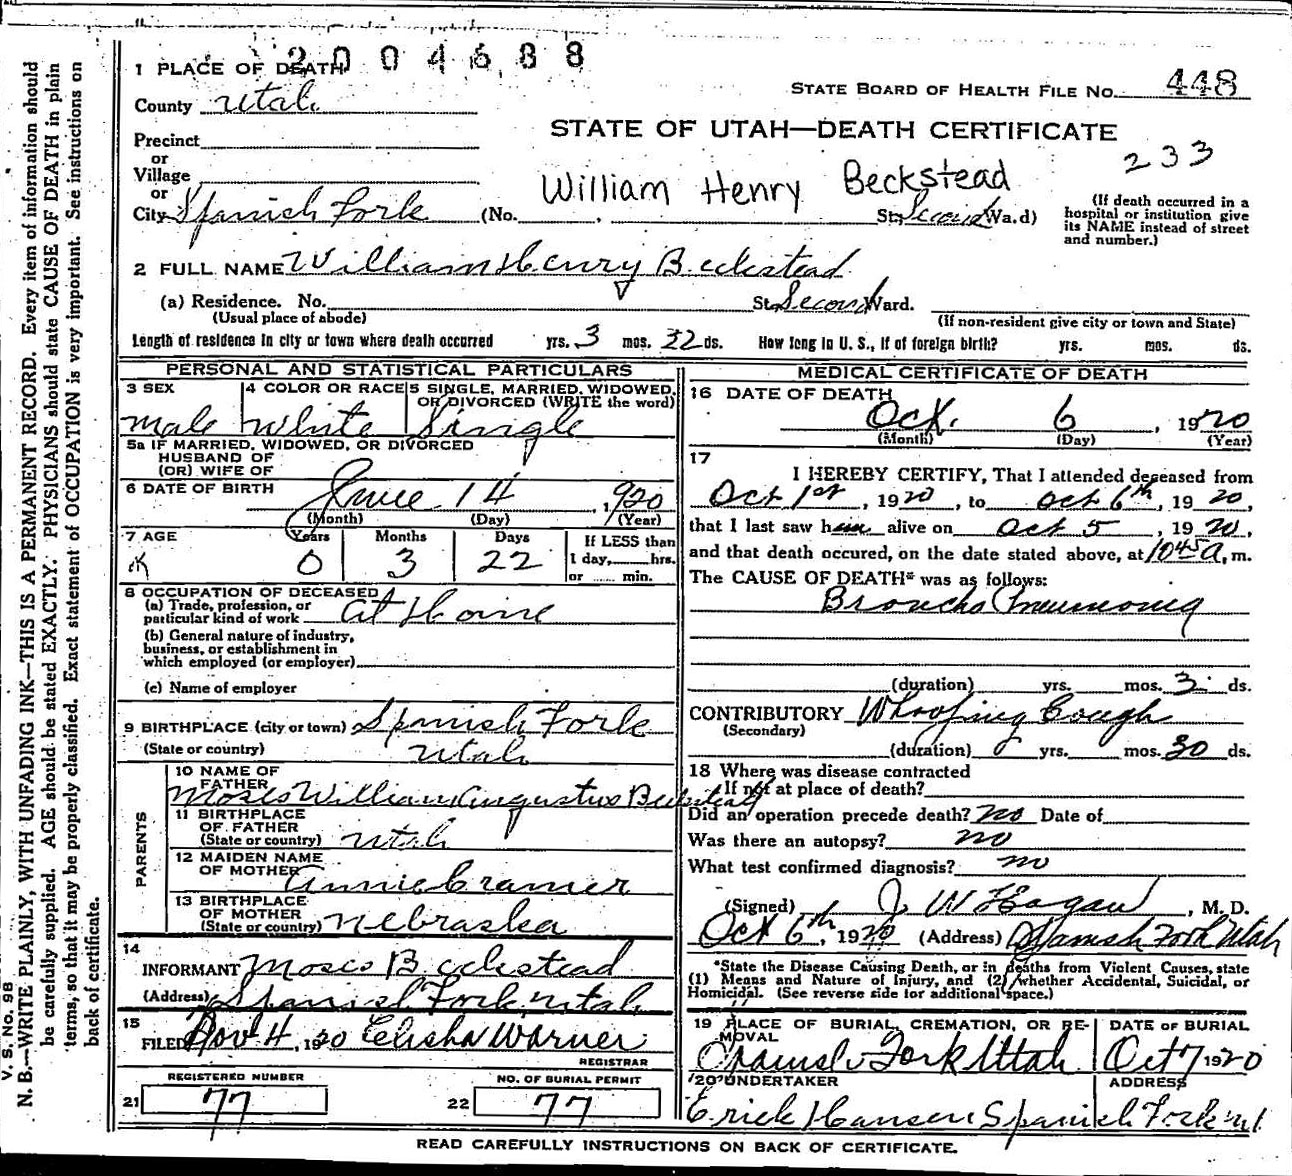 2004688
1 PLACE OF DEATH
STATE BOARD OF HEALTH FILE NO. 448
County Utah
STATE OF UTAH—DEATH CERTIFICATE
233
Precinct
or
Village
or
City Spanish Fork (No. , St. Second Wa.d)
William Henry Beckstead
(If death occurred in a
hospital or institution give
its NAME instead of street
and number.)
2 FULL NAME William Henry Beckstead
(a) Residence. No. St. Second Ward.
(Usual place of abode)
(If non-resident give city or town and State)
Length of residence in city or town where death occurred yrs. 3 mos. 22 ds. How long in U. S., if of foreign birth? yrs. mos. ds.
PERSONAL AND STATISTICAL PARTICULARS
3 SEX
male
4 COLOR OR RACE
White
5 SINGLE, MARRIED, WIDOWED,
OR DIVORCED (WRITE the word)
Single
5a IF MARRIED, WIDOWED, OR DIVORCED
HUSBAND OF
(OR) WIFE OF
6 DATE OF BIRTH June 14, 1920
(Month) (Day) (Year)
7 AGE Years Months Days If LESS than
0 3 22 1 day, hrs.
or min.
8 OCCUPATION OF DECEASED
(a) Trade, profession, or
particular kind of work at Home
(b) General nature of industry,
business, or establishment in
which employed (or employer)
(c) Name of employer
9 BIRTHPLACE (city or town) Spanish Fork
(State or country) Utah
PARENTS
10 NAME OF
FATHER
Moses William Augustus Beckstead
11 BIRTHPLACE
OF FATHER
(State or country) Utah
12 MAIDEN NAME
OF MOTHER Annie Cramer
13 BIRTHPLACE
OF MOTHER
(State or country) Nebraska
14
INFORMANT Moses Beckstead
(Address) Spanish Fork Utah
15
FILED Nov 4, 1920 Elisha Warner
REGISTRAR
REGISTERED NUMBER
21 77
NO. OF BURIAL PERMIT
22 77
MEDICAL CERTIFICATE OF DEATH
16 DATE OF DEATH
Oct. 6, 1920
(Month) (Day) (Year)
17
I HEREBY CERTIFY, That I attended deceased from
Oct 1st, 1920, to Oct 6th, 1920,
that I last saw him alive on Oct 5, 1920,
and that death occured, on the date stated above, at 1045 a, m.
The CAUSE OF DEATH* was as follows:
Broncho Pneumonia
(duration) yrs. mos. 3 ds.
CONTRIBUTORY Whooping Cough
(Secondary)
(duration) yrs. mos. 30 ds.
18 Where was disease contracted
If not at place of death?
Did an operation precede death? no Date of
Was there an autopsy? no
What test confirmed diagnosis? no
(Signed) J W Hagan, M. D.
Oct 6th, 1920 (Address) Spanish Fork Utah
*State the Disease Causing Death, or in deaths from Violent Causes, state
(1) Means and Nature of Injury, and (2) whether Accidental, Suicidal, or
Homicidal. (See reverse side for additional space.)
19 PLACE OF BURIAL, CREMATION, OR RE-
MOVAL
Spanish Fork Utah
DATE OF BURIAL
Oct 7 1920
20 UNDERTAKER
ADDRESS
Erick Hansen Spanish Fork Ut.
READ CAREFULLY INSTRUCTIONS ON BACK OF CERTIFICATE.
V. S. No. 98
N. B.—WRITE PLAINLY, WITH UNFADING INK—THIS IS A PERMANENT RECORD. Every item of information should
be carefully supplied. AGE should be stated EXACTLY. PHYSICIANS should state CAUSE OF DEATH in plain
terms, so that it may be properly classified. Exact statement of OCCUPATION is very important. See instructions on
back of certificate.